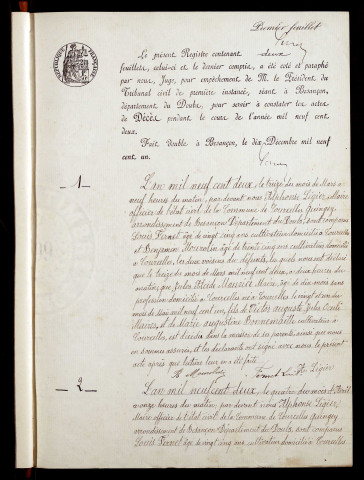 Premier feuillet
Le présent Registre contenant deux
feuillets, celui-ci et le dernier compris, a été coté et paraphé
par nous, Juge, pour empêchement de M. le Président du
Tribunal civil de première instance, séant à Besançon,
département du Doubs, pour servir à constater les actes
de Décès pendant le cours de l'année mil neuf cent
deux.
Fait double à Besançon, le dix Décembre mil neuf
cent un.
1
L'an mil neuf cent deux, le treize du mois de Mars a
neuf heures du matin, par devant nous Alphonse Légier, Maire
officier de l'état civil de la Commune de Courcelles Quingey,
arrondissement de Besançon Département du Doubs, sont comparus
Louis Fernet âgé de vingt cinq ans cultivateur domicilié a Courcelles
et Benjamin âgé de trente cinq ans cultivateur domicilié
a Courcelles, les deux voisins du défunt, les quels nous ont déclaré
que le treize du mois de Mars mil neuf cent deux, a deux heures du
matin, que Jules Maurice Maire, âgé de dix mois sans
profession domicilié a Courcelles né a Courcelles le vingt et un du
mois de Mai mil neuf cent un, fils de Victor Auguste Jules
Maire, et de Marie Augustine cultivateurs a
Courcelles, est décédé dans la maison de ses parents ainsi que nous
en sommes assurés, et les déclarants ont signé avec nous le présent
acte après que lecture leur en a été faite.
Fernet Louis Légier
2
L'an mil neuf cent deux, le quatre du mois d'Avril
a onze heures du matin par devant nous Alphonse Légier,
Maire officier de l'état civil de la Commune de Courcelles Quingey
arrondissement de Besançon Département du Doubs, sont comparus
Louis Fernet âgé de vingt cinq ans cultivateur domicilié a Courcelles